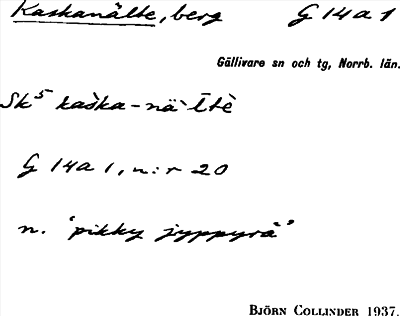 Kaskanälte, berg G 14 a 1
Gällivare sn och tg, Norrb. län.
Sk⁵ kaška-nä`ĪtÈ
G 14a 1, n:r 20
n. 'pikky jyppyrä'
BJÖRN COLLINDER 1937.